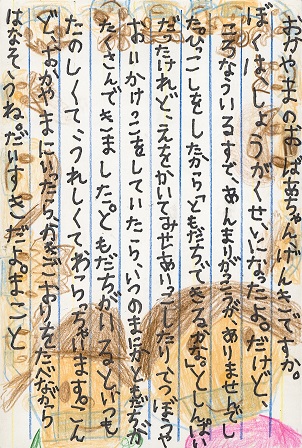 おかやまのおばあちゃん、げんきですか。
ぼくは、しょうがくせいになったよ。だけど、
ころなういるすで、あんまりがっこうが、ありませんでし
た。ひっこしをしたから「ともだちできるかな。」としんぱい
だったけれど、えをかいてみせあいっこしたり、てつぼうや
おいかけっこをしていたら、いつのまにかともだちが
たくさんできました。ともだちがいる。といつも
たのしくて、うれしくてわらっちゃいます。こん
ど、おかやまにいったら、かきごおりをたべながら
はなそうね。だいすきだよ。まこと